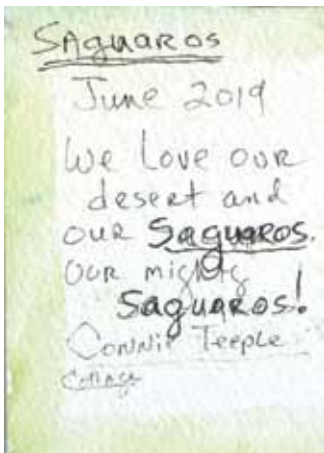 Saguaros
June 2019
We Love our
desert and
our Saguaros.
Our mighty
Saguaros!
Connie Teeple
Collage